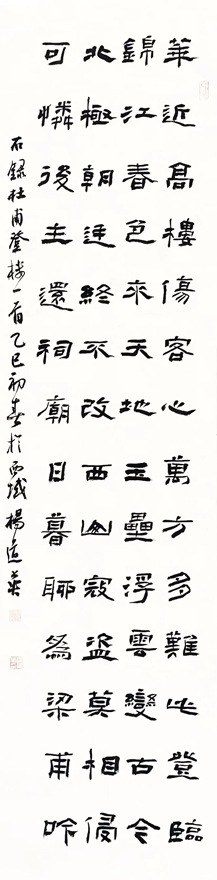 華近高樓傷客心萬方多難此登臨
錦江春色來天地玉壘浮雲變古今
北極朝廷終不改西山寇盜莫相侵
可憐後主還祠廟日暮聊為梁甫吟
右錄杜甫登樓一首乙巳初春於西域楊